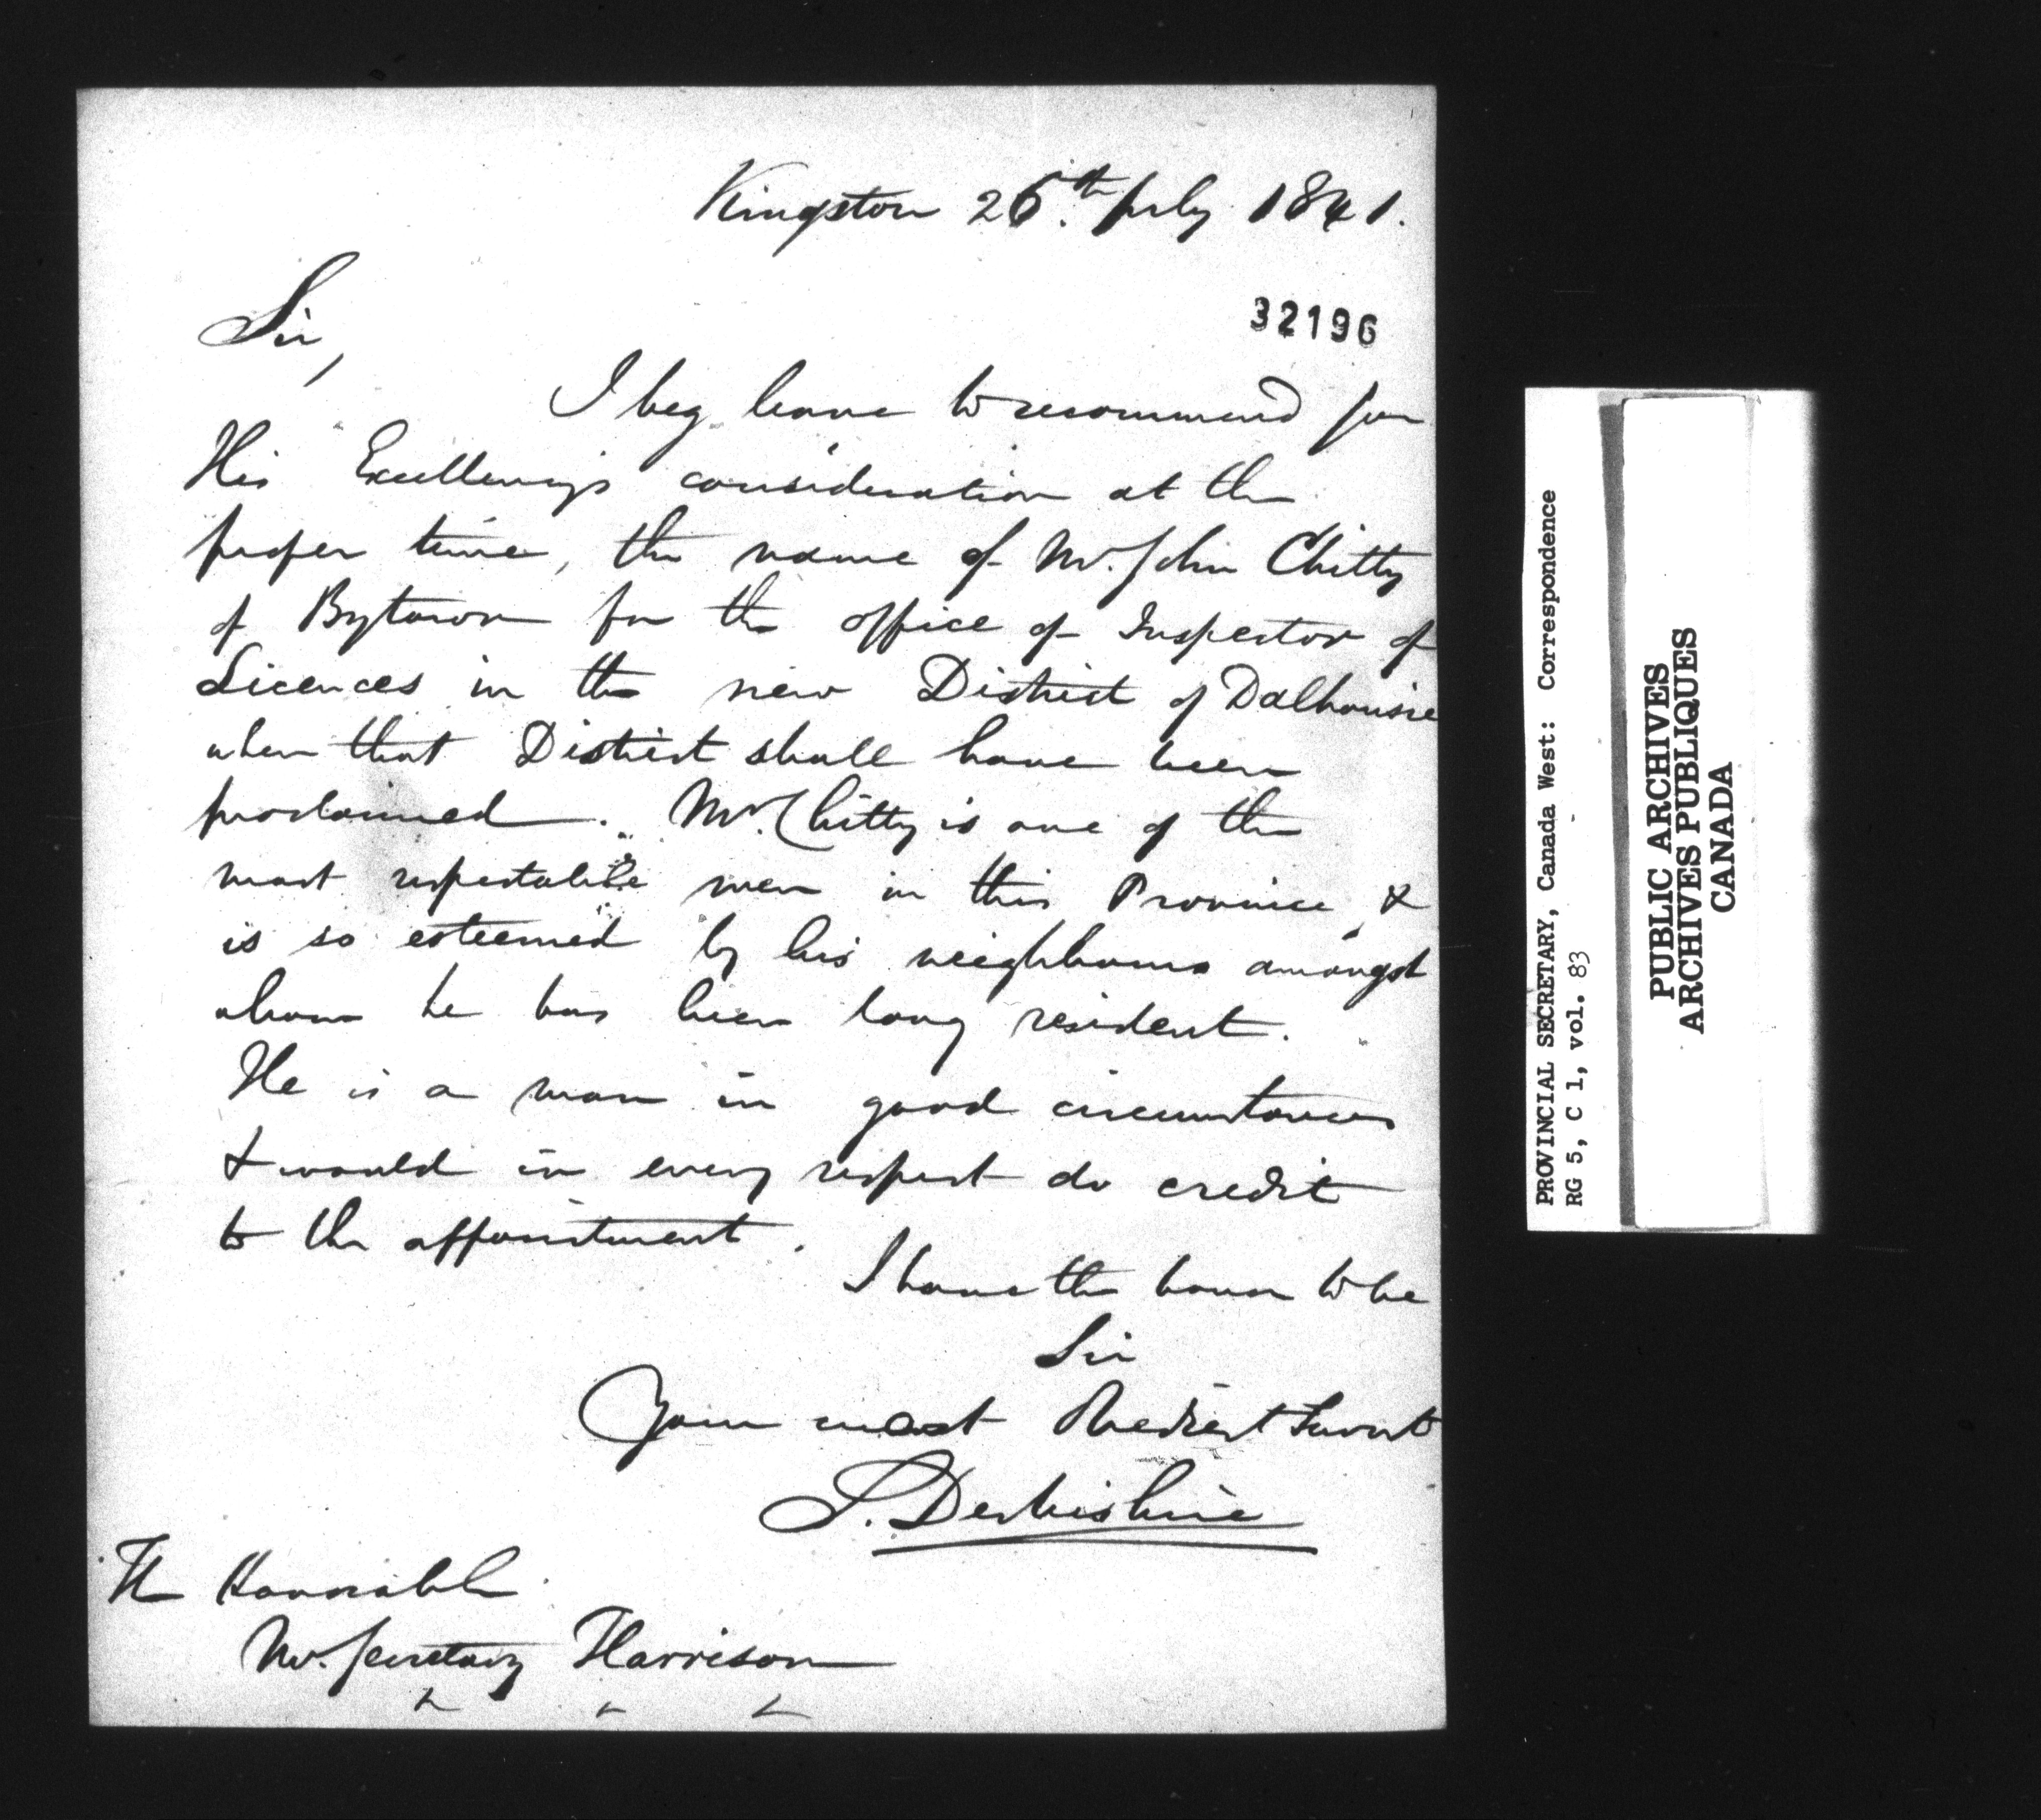 Kingston 26th. July 1841.
32196
Sir,
I beg leave to recommend for
His Excellency's consideration at the
proper time, the name of Mr. John Chitty
of Bytown for the office of Inspector of
Licences in the new District of Dalhousie
when that District shall have been
proclaimed. Mr. Chitty is one of the
most respectable men in this Province &
is so esteemed by his neighbours amongst
whom he has been long resident.
He is a man in good circumstances
& would in every respect do credit
to the appointment.
I have the honor to be
Sir
Your most Obedient Servt
S. Derbishire
The Honorable
Mr. Secretary Harrison
PROVINCIAL SECRETARY, Canada West: Correspondence
RG 5, C 1, vol. 83
PUBLIC ARCHIVES
ARCHIVES PUBLIQUES
CANADA